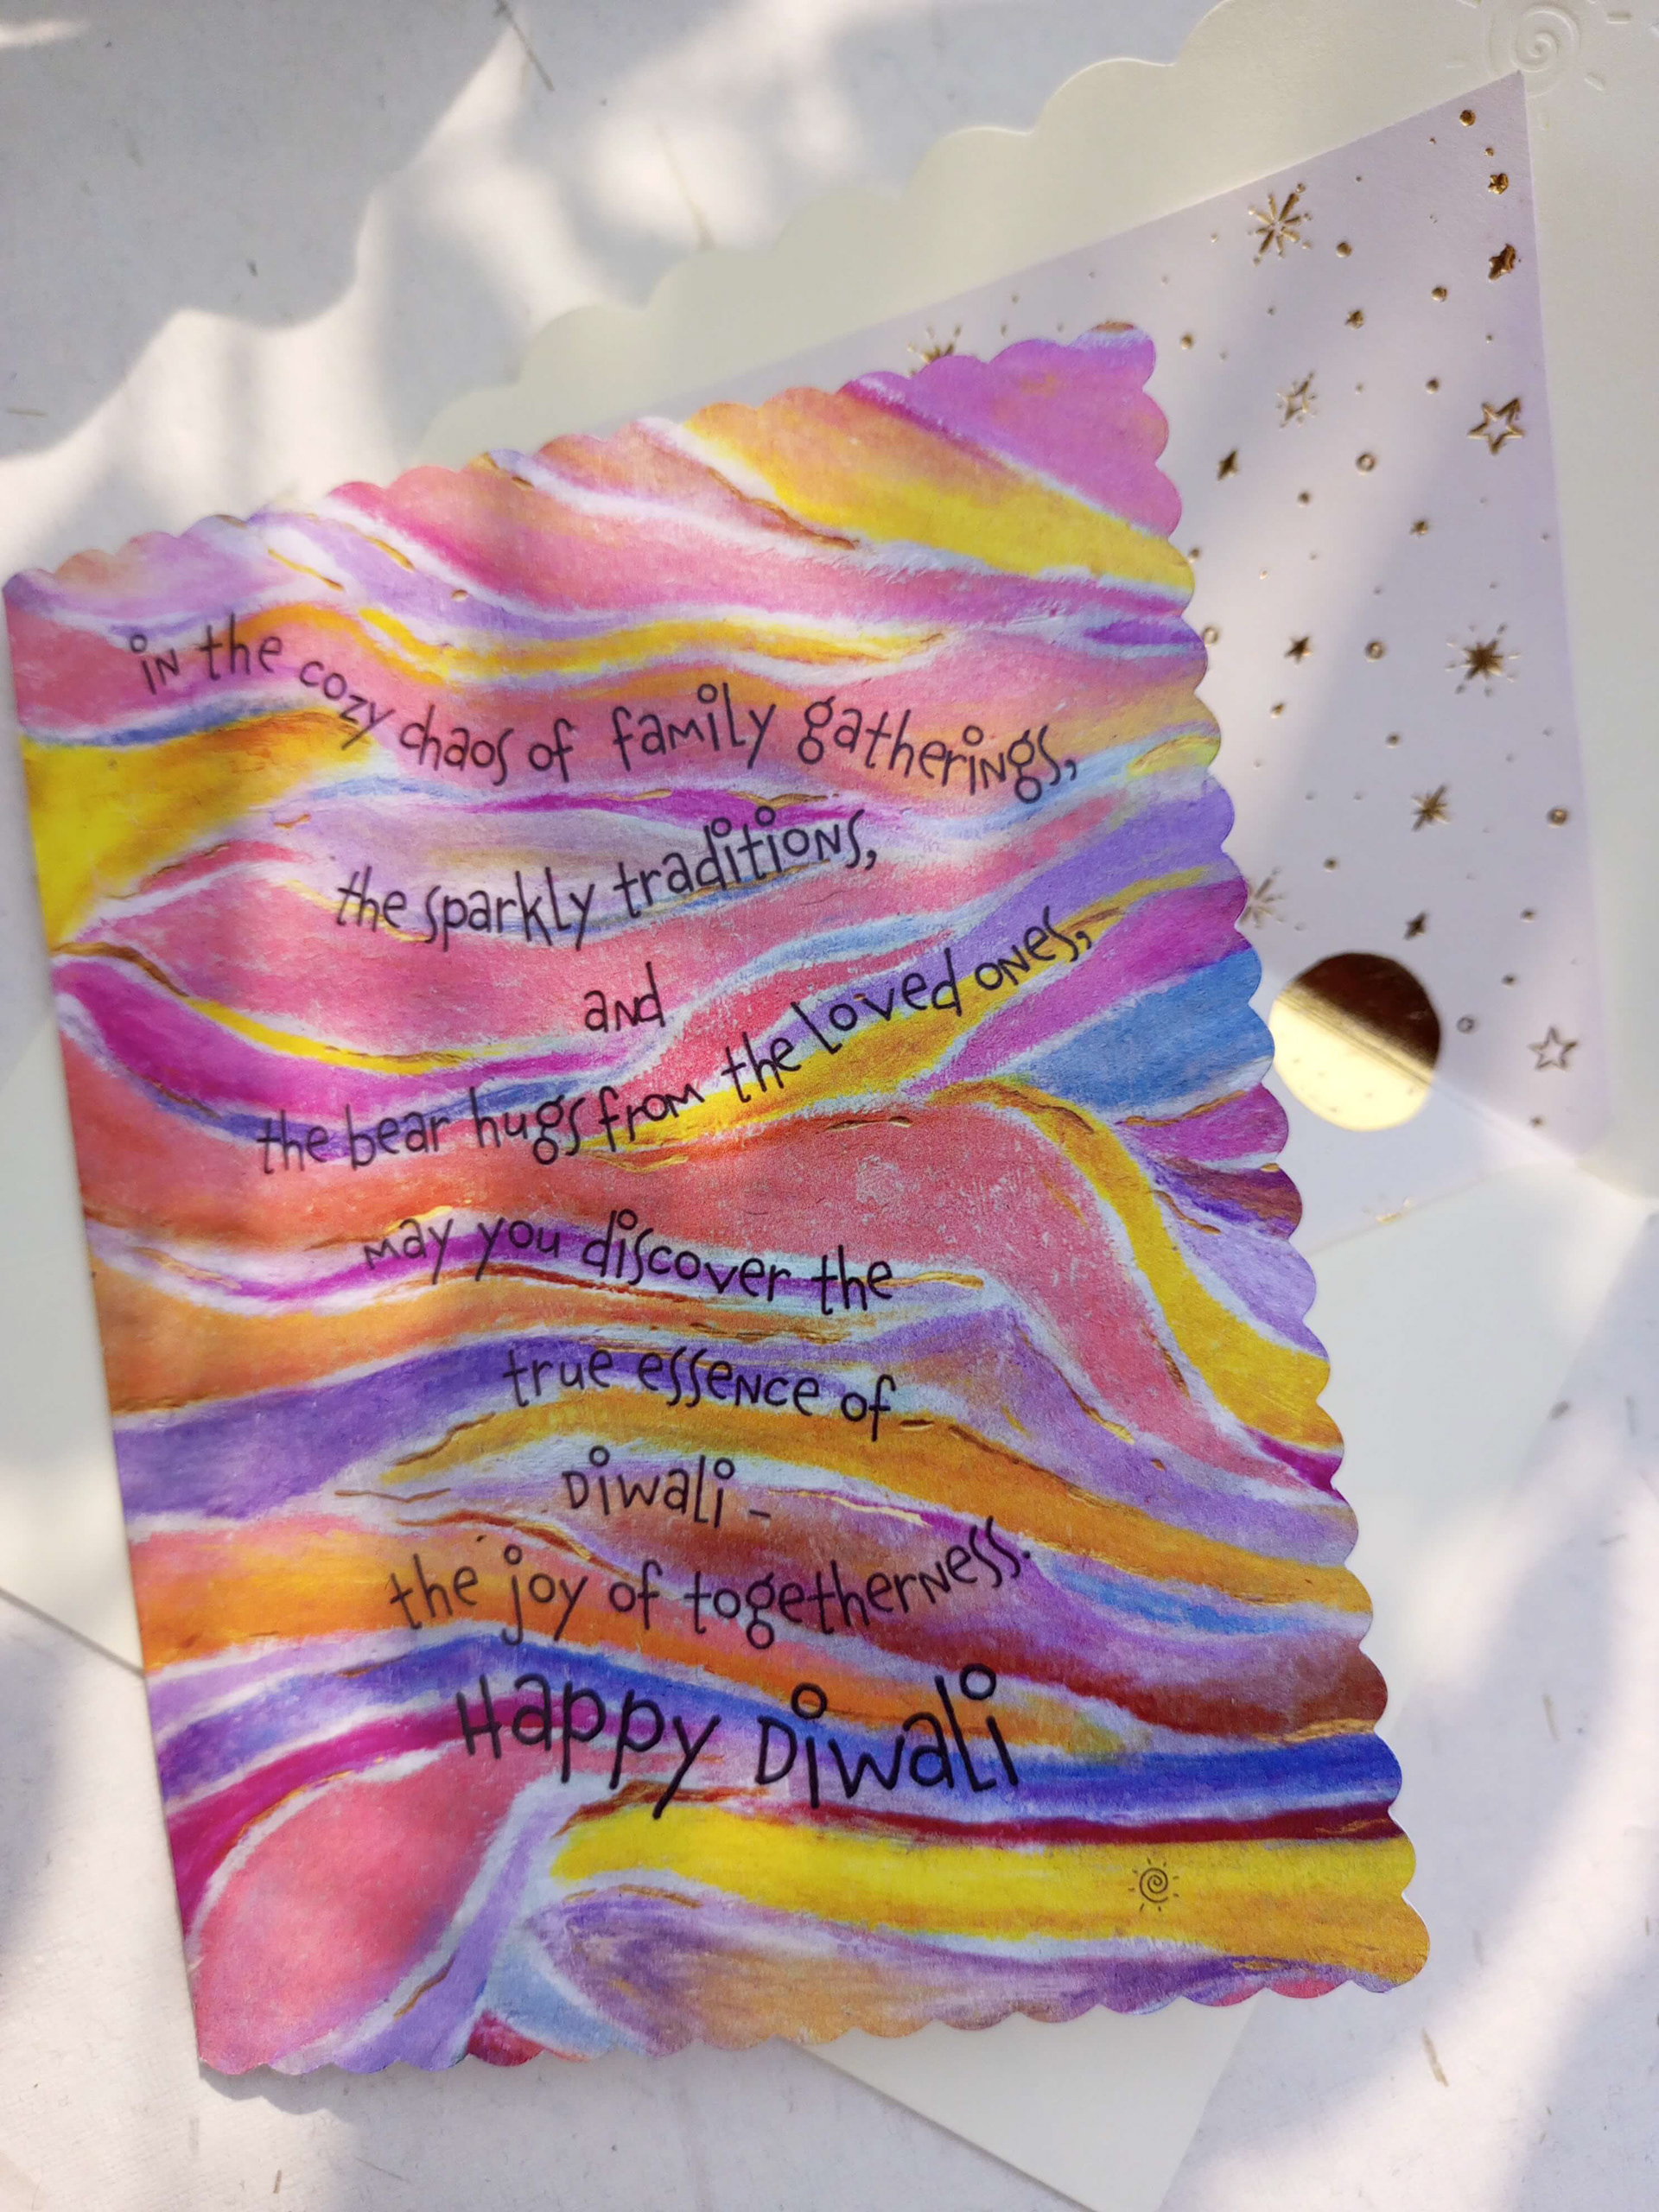 in the cozy chaos of family gatherings,
the sparkly traditions,
and
the bear hugs from the loved ones,
may you discover the
true essence of –
Diwali –
the joy of togetherness.
Happy Diwali